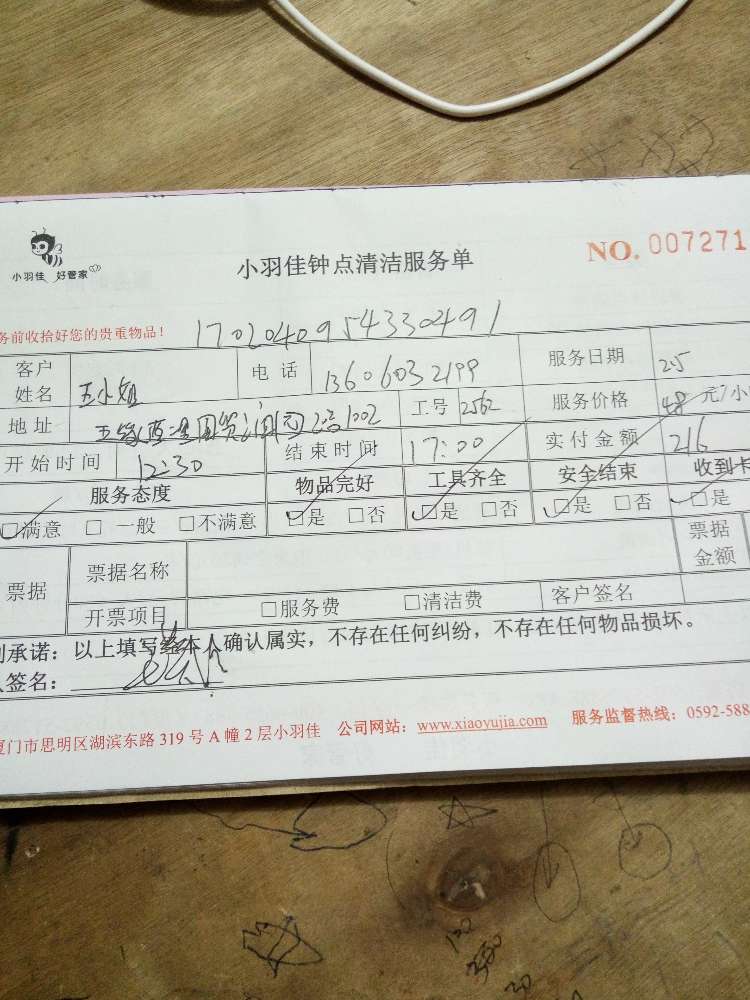 小羽佳 好管家
小羽佳钟点清洁服务单
NO. 007271
务前收拾好您的贵重物品！ 1702040954330491
客户姓名 王小姐 电话 13606032199 服务日期 2.5
地址 国贸 1002 工号 2562 服务价格 48 元/小
开始时间 12:30 结束时间 17:00 实付金额 216
服务态度 物品完好 工具齐全 安全结束 收到卡
□满意 □一般 □不满意 □是 □否 □是 □否 □是 □否 □是
票据 票据名称 票据金额
开票项目 □服务费 □清洁费 客户签名
承诺：以上填写经本人确认属实，不存在任何纠纷，不存在任何物品损坏。
人签名：
厦门市思明区湖滨东路 319 号 A 幢 2 层小羽佳 公司网站：www.xiaoyujia.com 服务监督热线：0592-588